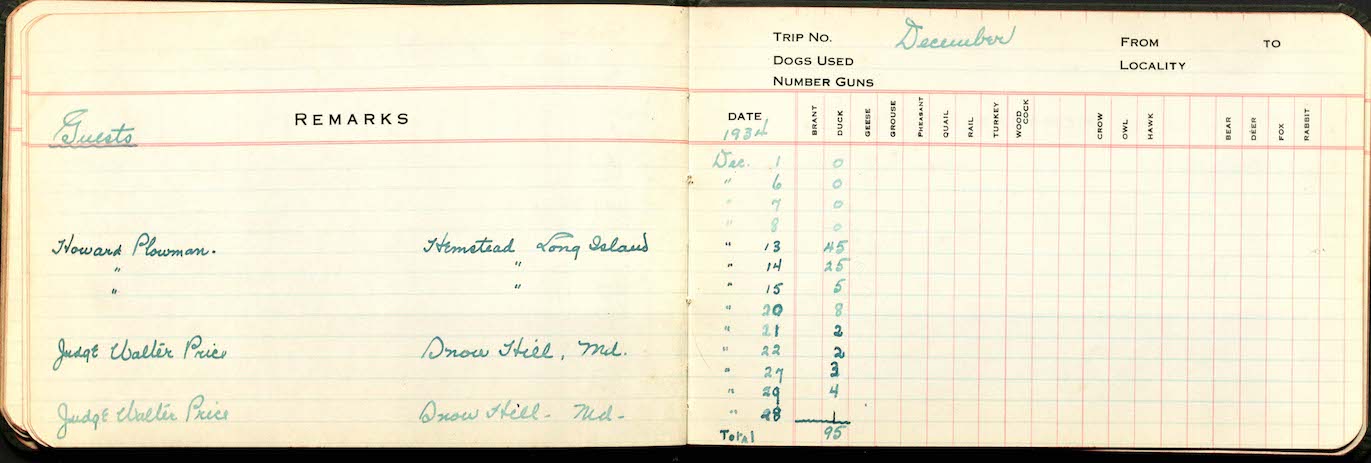 REMARKS
Guests
Howard Plowman. Hemstead Long Island
" "
" "
Judge Walter Price Snow Hill, Md.
Judge Walter Price Snow Hill - Md -
TRIP NO. December FROM TO
DOGS USED LOCALITY
NUMBER GUNS
DATE BRANT DUCK GEESE GROUSE PHEASANT QUAIL RAIL TURKEY WOOD COCK CROW OWL HAWK BEAR DEER FOX RABBIT
1934
Dec. 1 0
" 6 0
" 7 0
" 8 0
" 13 45
" 14 25
" 15 5
" 20 8
" 21 2
" 22 2
" 27 3
" 29 4
" 28 1
Total 95